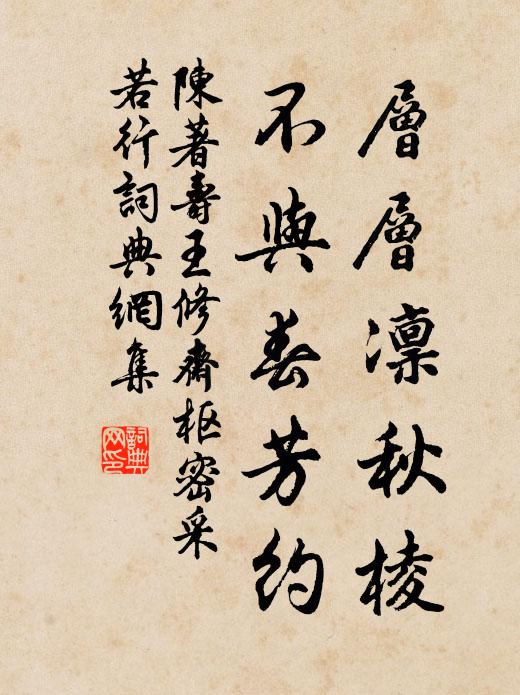 層層凜秋棱
不與春芳約
陳著壽王修齋枢密采
若行詞典網集
詞典
网印